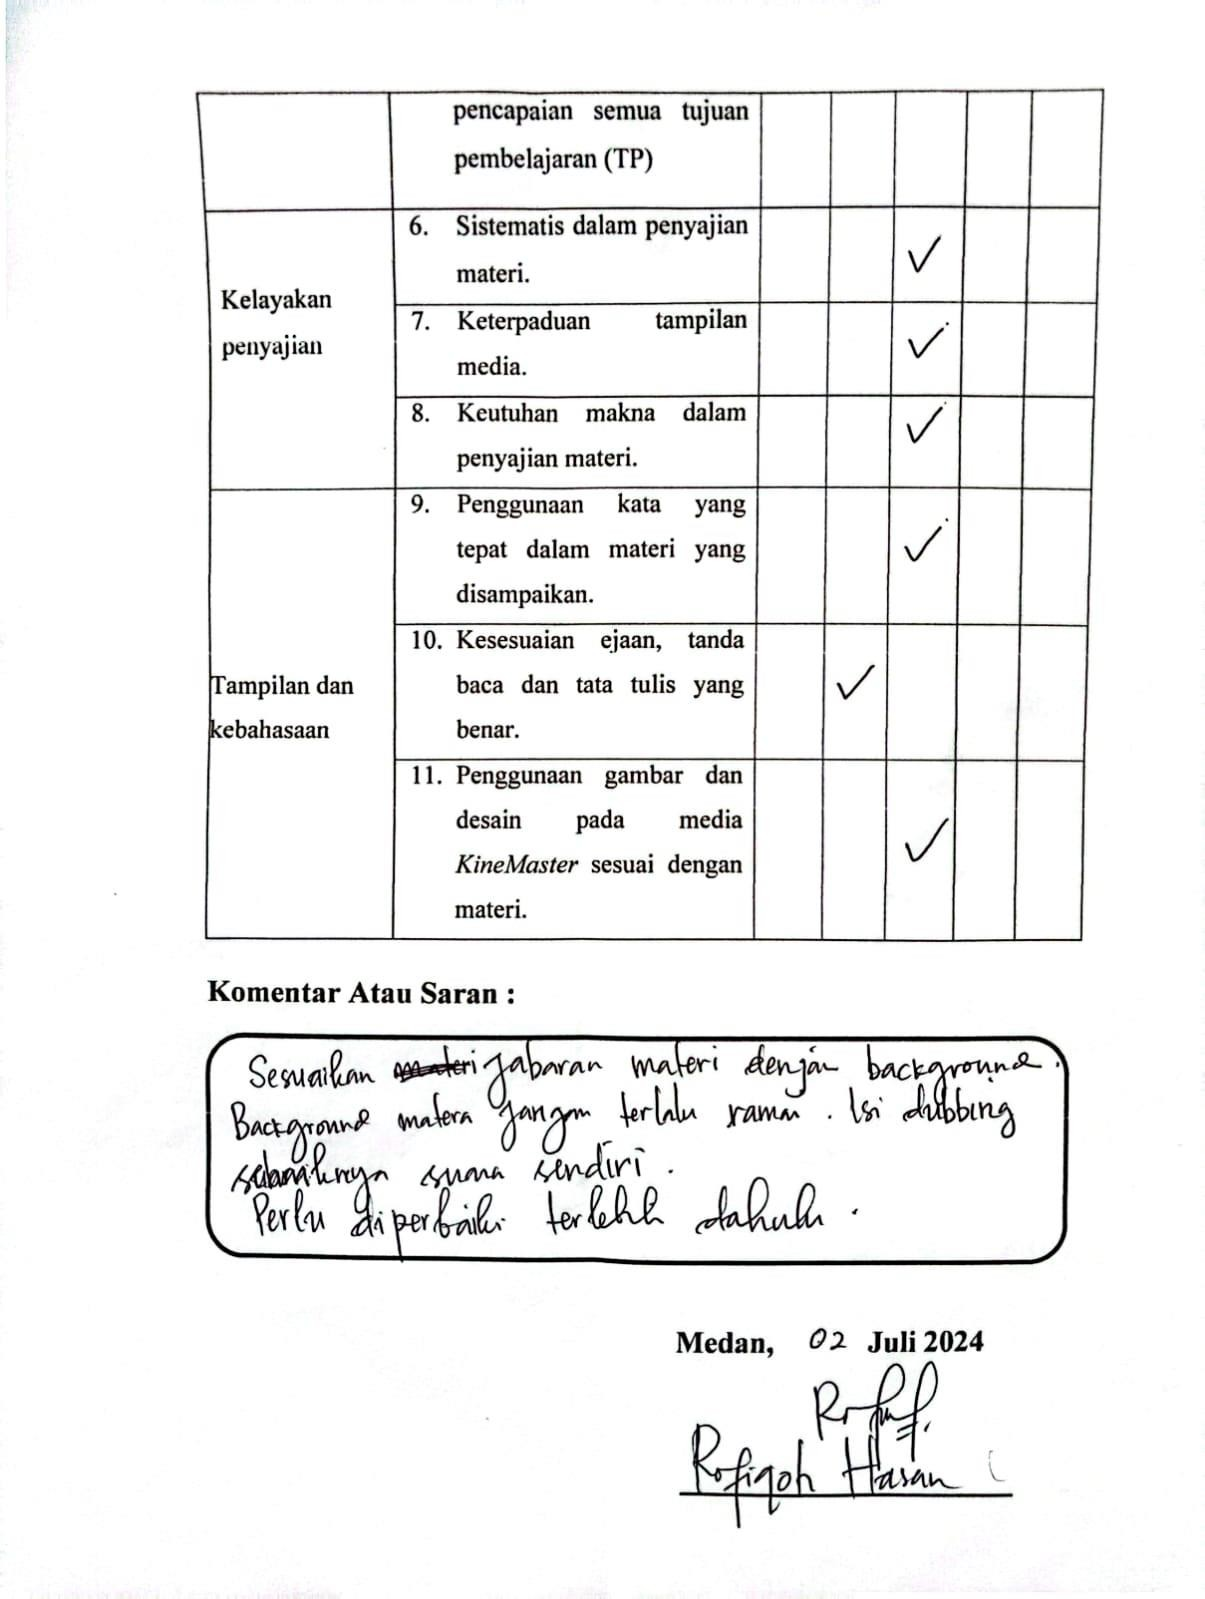 pencapaian semua tujuan
pembelajaran (TP)
Kelayakan
penyajian
6. Sistematis dalam penyajian
materi.
✓
7. Keterpaduan tampilan
media.
✓
8. Keutuhan makna dalam
penyajian materi.
✓
Tampilan dan
kebahasaan
9. Penggunaan kata yang
tepat dalam materi yang
disampaikan.
✓
10. Kesesuaian ejaan, tanda
baca dan tata tulis yang
benar.
✓
11. Penggunaan gambar dan
desain pada media
KineMaster sesuai dengan
materi.
✓
Komentar Atau Saran :
Sesuaikan materi jabaran materi dengan background.
Background jangan terlalu ramai. Isi dubbing
suara sendiri.
Perlu diperbaiki dahulu.
Medan, 02 Juli 2024
Rofiqoh Hasan